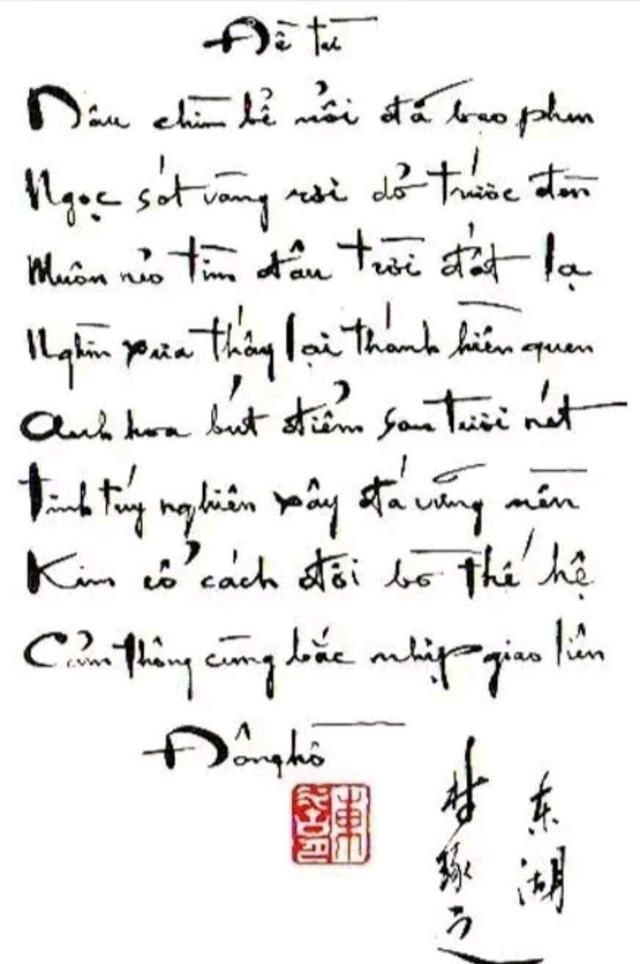 Đề từ
Dâu chìm bể nổi đã bao phen
Ngọc sót vàng rơi dở trước đèn
Muôn nẻo tìm đâu trời đất lạ
Nghìn xưa thấy lại thánh hiền quen
Anh hoa bút điểm son tươi nét
Tinh túy nghiên xây đá vững nền
Kim cổ cách đôi bờ thế hệ
Cảm thông cùng bắc nhịp giao liên
Đông hồ
東湖
林琢之
東